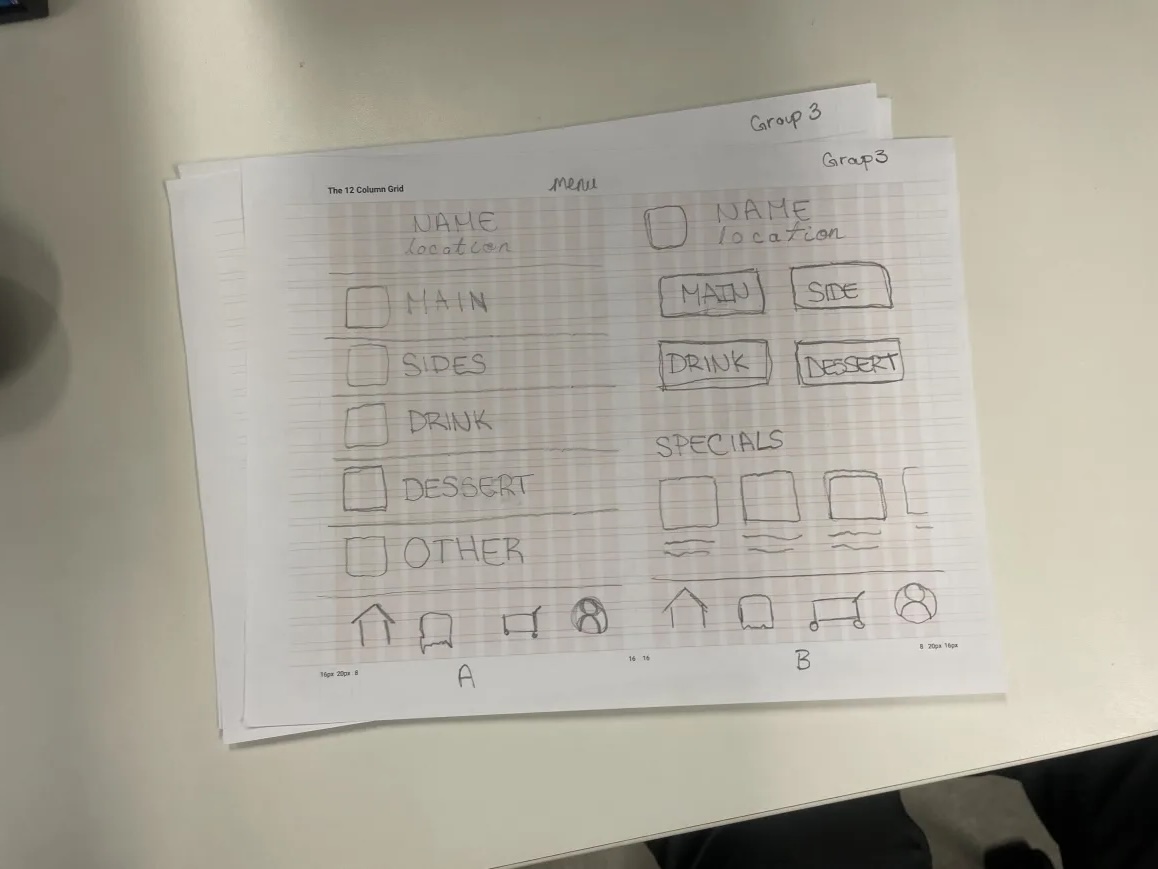 Group 3
Group 3
The 12 Column Grid
Menu
NAME
location
MAIN
SIDES
DRINK
DESSERT
OTHER
16px 20px 8
A
NAME
location
MAIN
SIDE
DRINK
DESSERT
SPECIALS
16 16
B
8 20px 16px